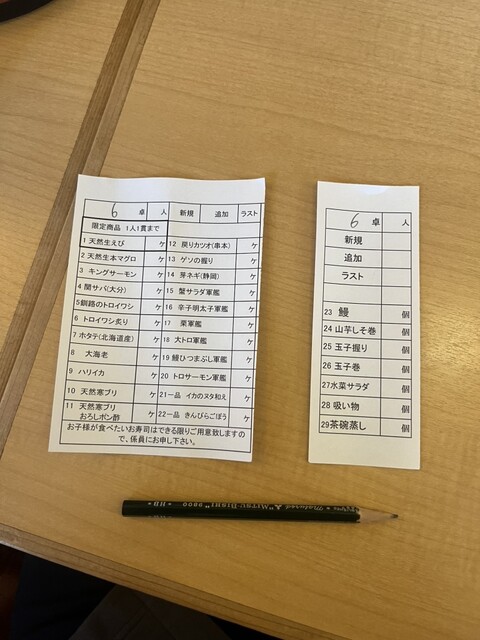 6 卓 人 新規 追加 ラスト
限定商品 1人1貫まで
1 天然生えび ケ 12 戻りカツオ(串本) ケ
2 天然生本マグロ ケ 13 ゲソの握り ケ
3 キングサーモン ケ 14 芽ネギ(静岡) ケ
4 関サバ(大分) ケ 15 蟹サラダ軍艦 ケ
5 釧路のトロイワシ ケ 16 辛子明太子軍艦 ケ
6 トロイワシ炙り ケ 17 栗軍艦 ケ
7 ホタテ(北海道産) ケ 18 大トロ軍艦 ケ
8 大海老 ケ 19 鰻ひつまぶし軍艦 ケ
9 ハリイカ ケ 20 トロサーモン軍艦 ケ
10 天然寒ブリ ケ 21一品 イカのヌタ和え ケ
11 天然寒ブリ おろしポン酢 ケ 22一品 きんぴらごぼう ケ
お子様が食べたいお寿司はできる限りご用意致しますの
で、係員にお申し下さい。
6 卓 人
新規
追加
ラスト
23 鰻 個
24 山芋しそ巻 個
25 玉子握り 個
26 玉子巻 個
27水菜サラダ 個
28 吸い物 個
29茶碗蒸し 個
"MITSU-BISHI" 9800 ✶ HB ✶